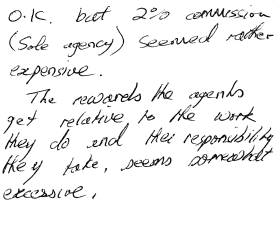 O.K. but 2% commission
(Sole agency) seemed rather
expensive.
The rewards the agents
get relative to the work
they do and their responsibility
they take, seems somewhat
excessive.